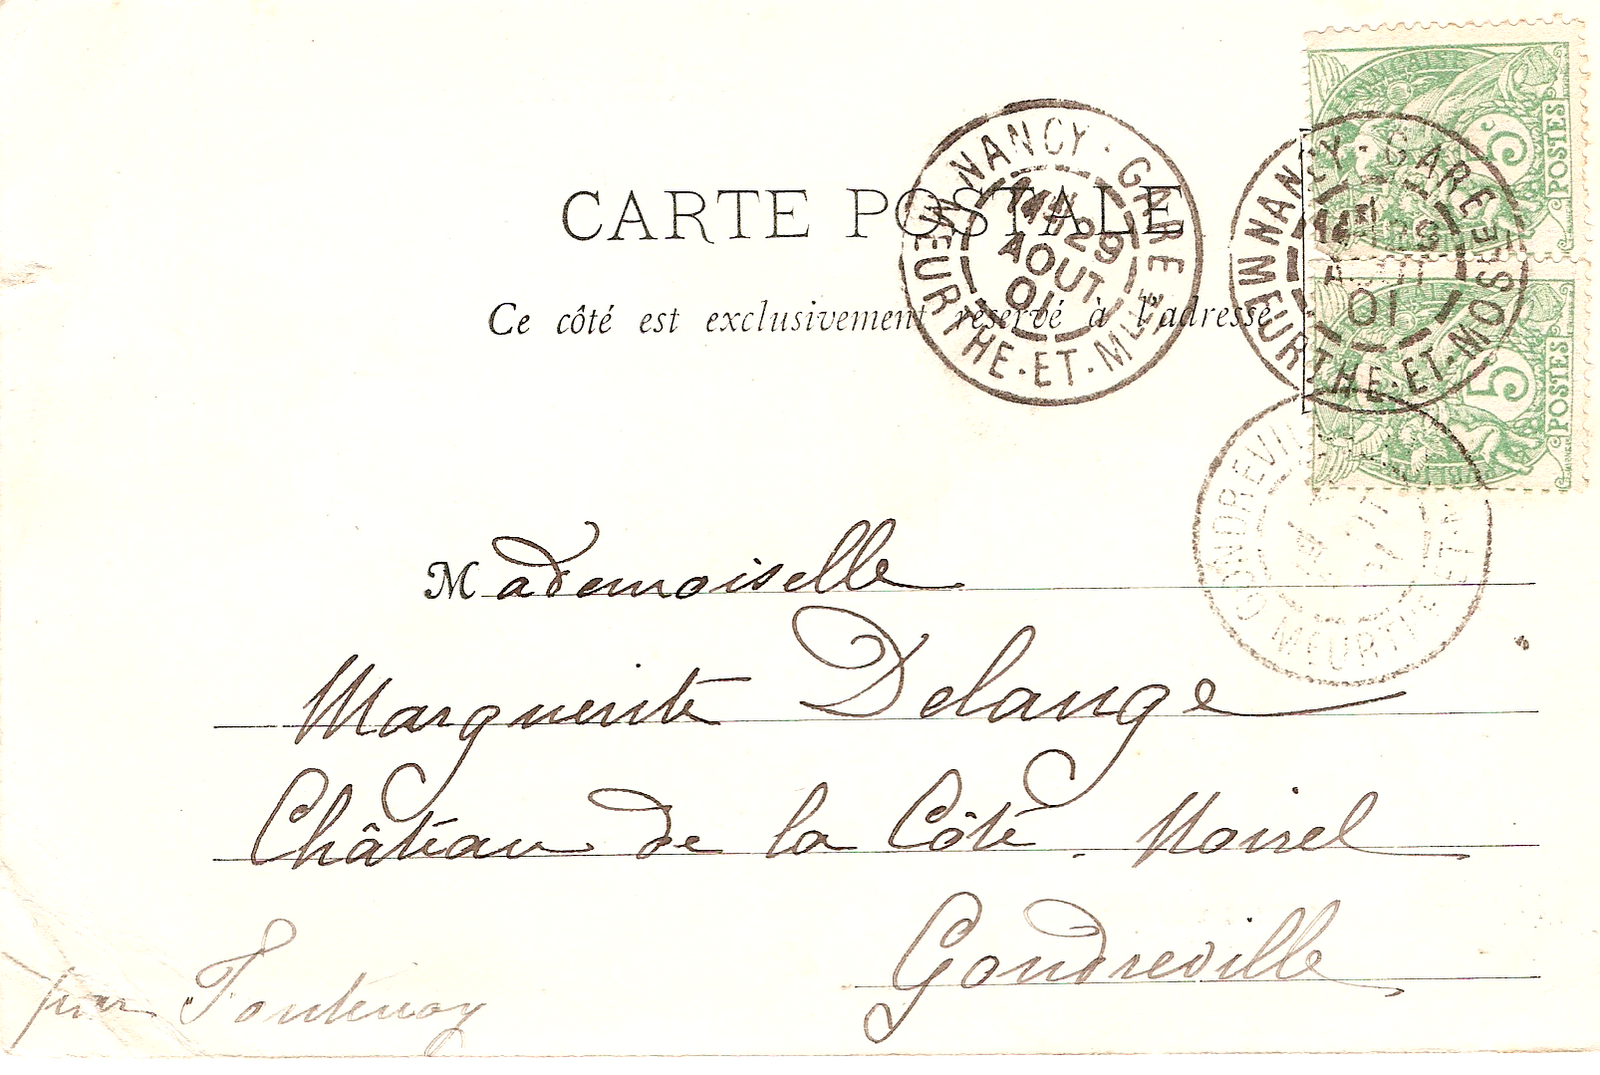 CARTE POSTALE
Ce côté est exclusivement réservé à l'adresse
NANCY · GARE
29
AOUT
01
MEURTHE · ET · MLLE
FRANÇAISE
5
POSTES
NANCY · GARE
01
MEURTHE · ET · MOSELLE
5
POSTES
MEURTHE ET
Mademoiselle
Marguerite Delange
Château de la Côte. Noirel
Gondreville
par Fontenoy